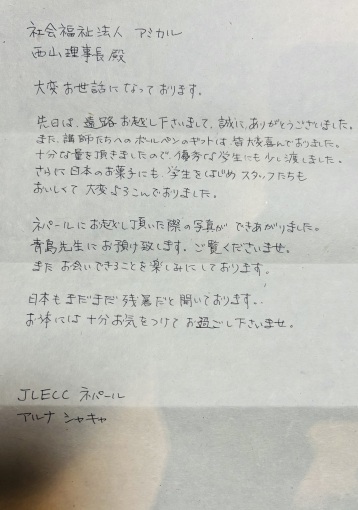 社会福祉法人 アミカル
西山理事長 殿
大変お世話になっております。
先日は、遠路お越し下さいまして、誠にありがとうございました。
また、講師たちへのボールペンのギフトは、皆大喜んでおりました。
十分な量を頂きましたので、優秀な学生にも少し渡しました。
さらに日本のお菓子にも、学生をはじめスタッフたちも
おいしくて 大変よろこんでおりました。
ネパールにお越し頂いた際の写真ができあがりました。
青島先生にお預け致します。ご覧くださいませ。
またお会いできることを楽しみにしております。
日本もまだまだ残暑だと聞いております。
お体には十分お気をつけてお過ごし下さいませ。
JLECC ネパール
アルナ シャキャ